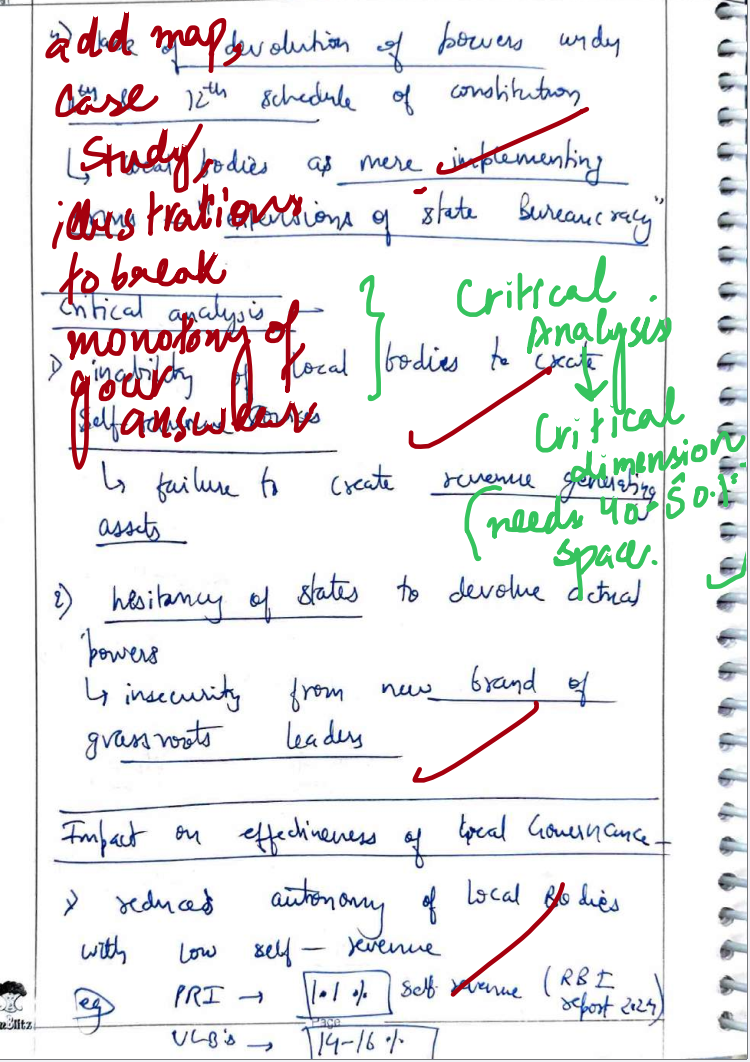 of devolution of powers under
12th schedule of constitution
↳ bodies as mere implementing
of state Bureaucracy"
add map,
case
study,
illustrations
to break
monotony of
your
answer
Critical analysis
1) inability of local bodies to create
Self
↳ failure to create revenue generating
assets
Critical
Analysis
↓
Critical
dimension
needs 40-50%
space.
2) hesitancy of states to devolve actual
powers
↳ insecurity from new brand of
grassroots leaders
Impact on effectiveness of local Governance -
1) reduced autonomy of Local Bodies
with low self-revenue
eg PRI → 1.1 % self revenue (RBI
report 2024)
ULB's → 14-16 %
Page